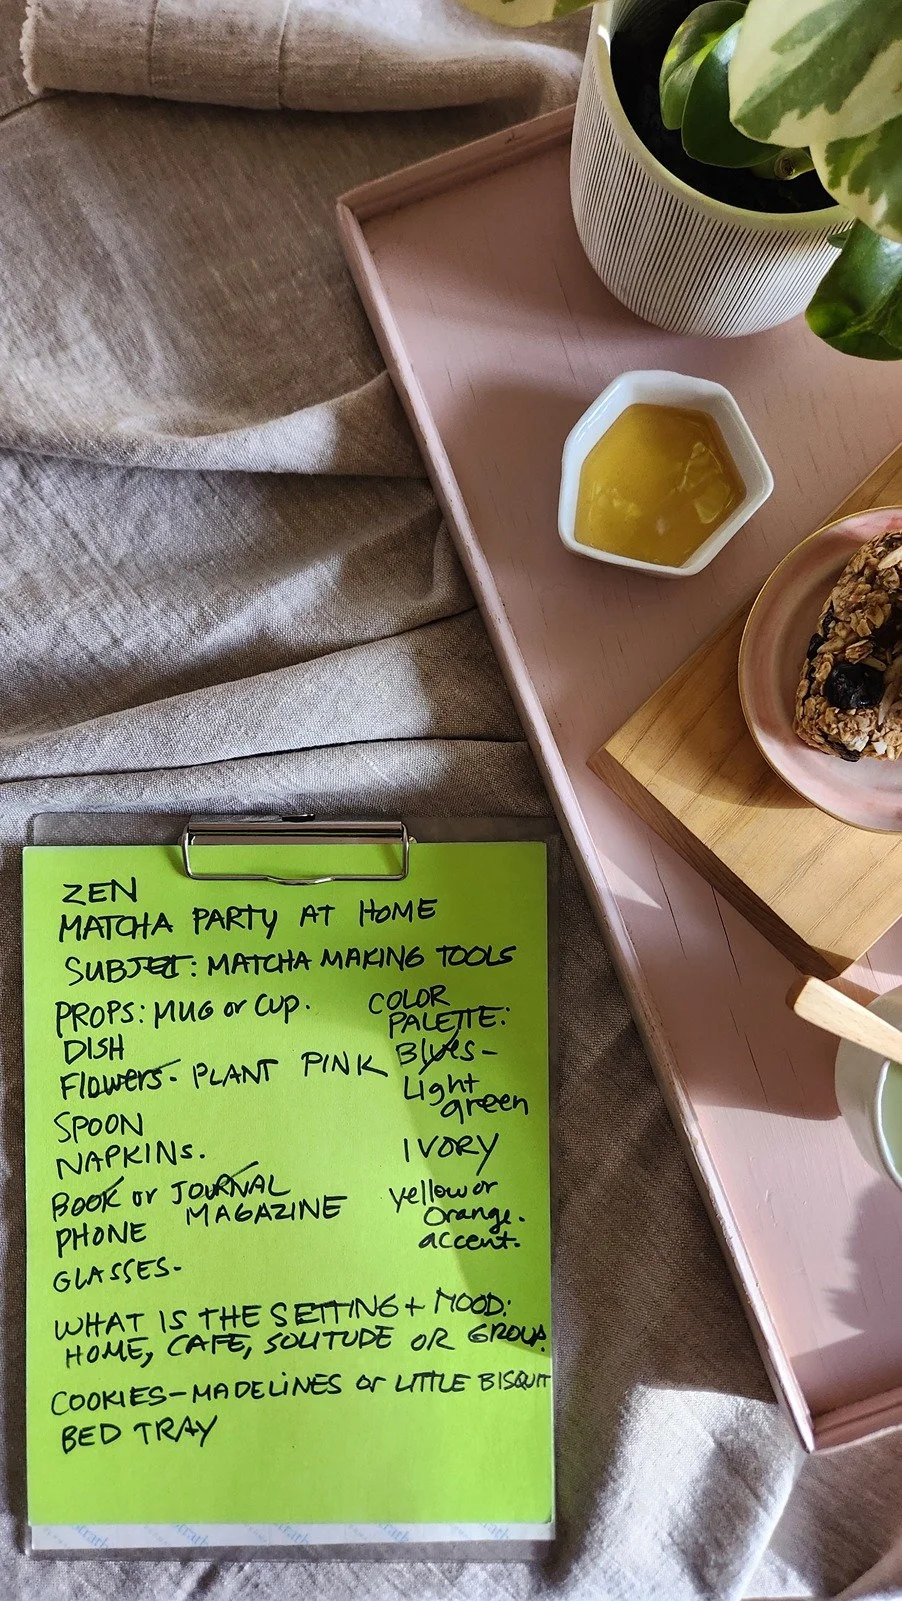 ZEN
MATCHA PARTY AT HOME
SUBJECT: MATCHA MAKING TOOLS
PROPS: MUG or CUP.
DISH
Flowers. PLANT PINK
SPOON
NAPKINS.
BOOK or JOURNAL
MAGAZINE
PHONE
GLASSES.
COLOR
PALETTE:
Blues-
Light
green
IVORY
yellow or
Orange.
accent.
WHAT IS THE SETTING + MOOD:
HOME, CAFE, SOLITUDE OR GROUP.
COOKIES-MADELINES or LITTLE BISQUIT
BED TRAY